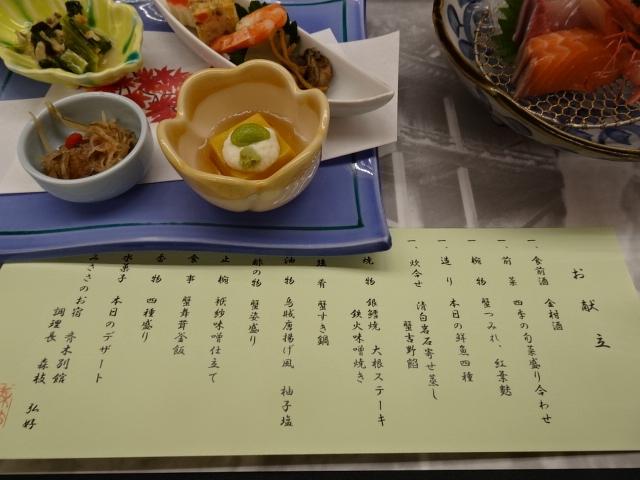 お献立
一、食前酒 金柑酒
一、前菜 四季の旬菜盛り合わせ
一、椀物 蟹つみれ、紅葉麩
一、造り 本日の鮮魚四種
一、炊合せ 清白岩石寄せ蒸し
蟹吉野餡
焼物 銀鱈焼 大根ステーキ
鉄火味噌焼き
肴 蟹すき鍋
油物 烏賊唐揚げ風 柚子塩
酢の物 蟹姿盛り
止椀 袱紗味噌仕立て
食事 蟹舞茸釜飯
香物 四種盛り
水菓子 本日のデザート
みささのお宿 斉木別館
調理長 森枝 弘好